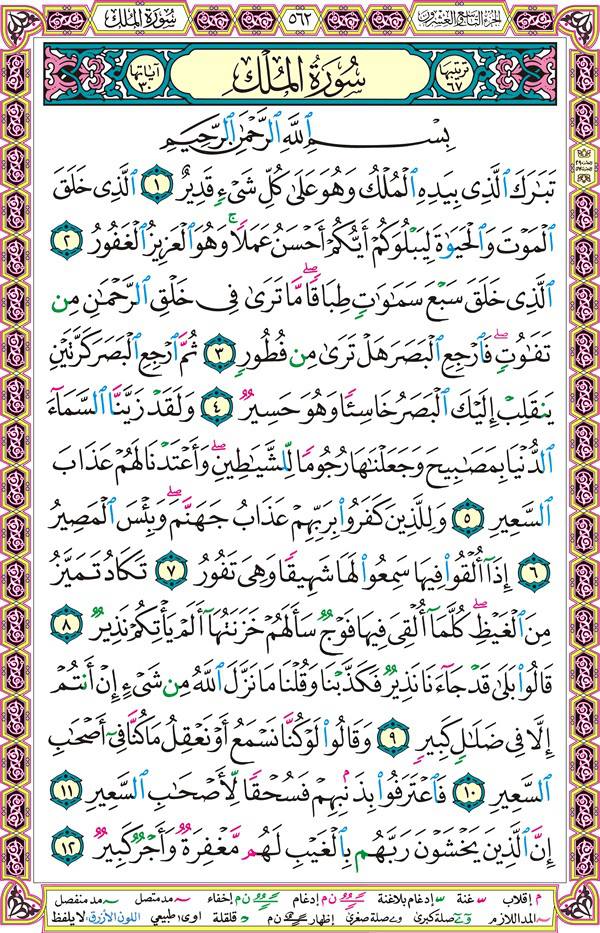 سُورَةُ المُلْك
٥٦٢
الجزء التاسع والعشرون
ترتيبها ٦٧
سُورَةُ المُلْكِ
آياتها ٣٠
بِسْمِ ٱللَّهِ ٱلرَّحْمَٰنِ ٱلرَّحِيمِ
تَبَٰرَكَ ٱلَّذِي بِيَدِهِ ٱلْمُلْكُ وَهُوَ عَلَىٰ كُلِّ شَيْءٍ قَدِيرٌ ١ ٱلَّذِي خَلَقَ
ٱلْمَوْتَ وَٱلْحَيَوٰةَ لِيَبْلُوَكُمْ أَيُّكُمْ أَحْسَنُ عَمَلًا ۚ وَهُوَ ٱلْعَزِيزُ ٱلْغَفُورُ ٢
ٱلَّذِي خَلَقَ سَبْعَ سَمَٰوَٰتٍ طِبَاقًا ۖ مَّا تَرَىٰ فِي خَلْقِ ٱلرَّحْمَٰنِ مِن
تَفَٰوُتٍ ۖ فَٱرْجِعِ ٱلْبَصَرَ هَلْ تَرَىٰ مِن فُطُورٍ ٣ ثُمَّ ٱرْجِعِ ٱلْبَصَرَ كَرَّتَيْنِ
يَنقَلِبْ إِلَيْكَ ٱلْبَصَرُ خَاسِئًا وَهُوَ حَسِيرٌ ٤ وَلَقَدْ زَيَّنَّا ٱلسَّمَآءَ
ٱلدُّنْيَا بِمَصَٰبِيحَ وَجَعَلْنَٰهَا رُجُومًا لِّلشَّيَٰطِينِ ۖ وَأَعْتَدْنَا لَهُمْ عَذَابَ
ٱلسَّعِيرِ ٥ وَلِلَّذِينَ كَفَرُوا۟ بِرَبِّهِمْ عَذَابُ جَهَنَّمَ ۖ وَبِئْسَ ٱلْمَصِيرُ
٦ إِذَآ أُلْقُوا۟ فِيهَا سَمِعُوا۟ لَهَا شَهِيقًا وَهِيَ تَفُورُ ٧ تَكَادُ تَمَيَّزُ
مِنَ ٱلْغَيْظِ ۖ كُلَّمَآ أُلْقِيَ فِيهَا فَوْجٌ سَأَلَهُمْ خَزَنَتُهَآ أَلَمْ يَأْتِكُمْ نَذِيرٌ ٨
قَالُوا۟ بَلَىٰ قَدْ جَآءَنَا نَذِيرٌ فَكَذَّبْنَا وَقُلْنَا مَا نَزَّلَ ٱللَّهُ مِن شَيْءٍ إِنْ أَنتُمْ
إِلَّا فِي ضَلَٰلٍ كَبِيرٍ ٩ وَقَالُوا۟ لَوْ كُنَّا نَسْمَعُ أَوْ نَعْقِلُ مَا كُنَّا فِيٓ أَصْحَٰبِ
ٱلسَّعِيرِ ١٠ فَٱعْتَرَفُوا۟ بِذَنۢبِهِمْ فَسُحْقًا لِّأَصْحَٰبِ ٱلسَّعِيرِ ١١
إِنَّ ٱلَّذِينَ يَخْشَوْنَ رَبَّهُم بِٱلْغَيْبِ لَهُم مَّغْفِرَةٌ وَأَجْرٌ كَبِيرٌ ١٢
م إقلاب غنة إدغام بلاغنة ن م إدغام ن م إخفاء مد متصل مد منفصل
المد اللازم صلة كبرى صلة صغرى إظهار ن م قلقلة اوى طبيعي اللون الأزرق: لا يلفظ